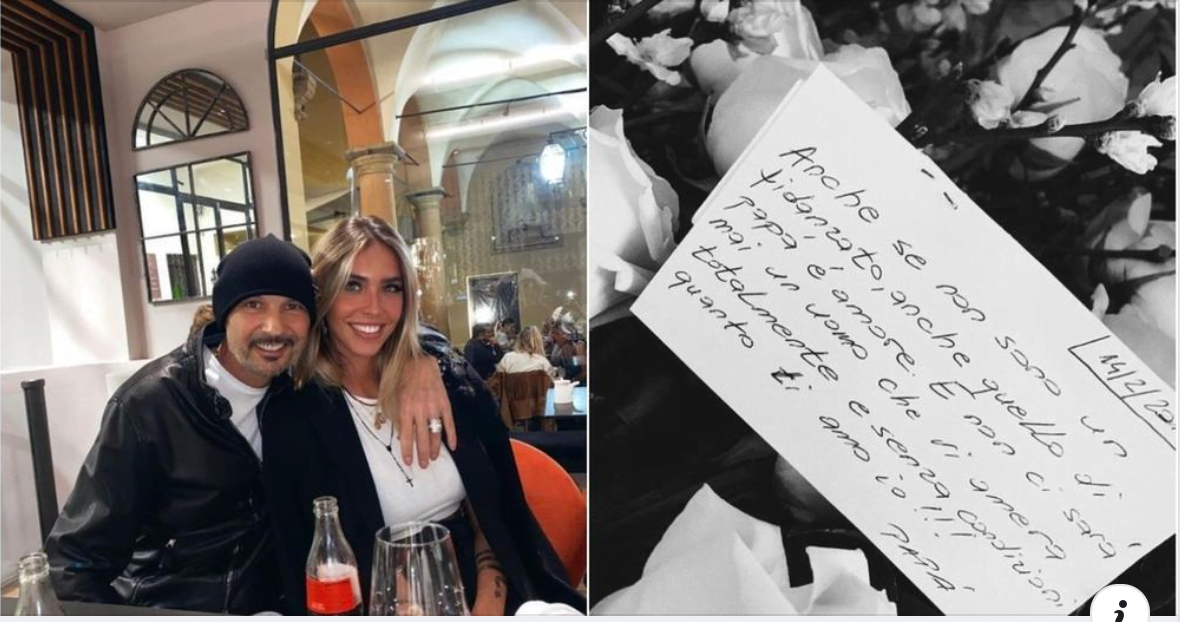 14/2/20.
Anche se non sono un
fidanzato, anche quello di
papà, è amore. E non ci sarà
mai un uomo che vi amerà
totalmente e senza condizioni
quanto ti amo io!!
PAPÀ
i